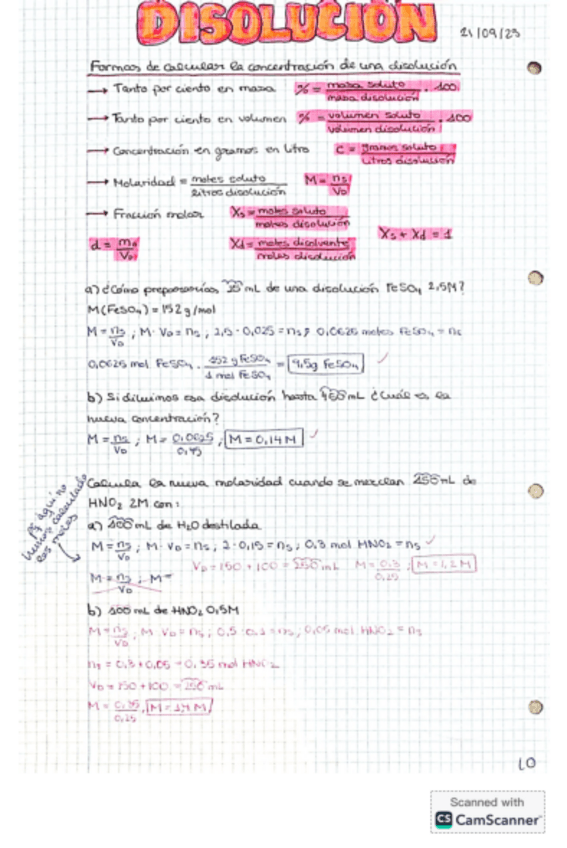 DISOLUCIÓN
21/09/23
Formas de calcular la concentración de una disolución
→ Tanto por ciento en masa % = masa soluto / masa disolución · 100
→ Tanto por ciento en volumen % = volumen soluto / volumen disolución · 100
→ Concentración en gramos en litro C = gramos soluto / litros disolución
→ Molaridad = moles soluto / litros disolución M = ns / VD
→ Fracción molar Xs = moles soluto / moles disolución
Xs + Xd = 1
d = / Xd = moles disolvente / moles disolución
a) ¿Cómo prepararías 25 mL de una disolución FeSO4 2,5M?
M(FeSO4) = 152 g/mol
M = ns / VD ; M · VD = ns ; 2,5 · 0,025 = ns ; 0,0625 moles FeSO4 = ns
0,0625 mol FeSO4 · 152 g FeSO4 / 1 mol FeSO4 = 9,5g FeSO4 ✓
b) Si diluimos esa disolución hasta mL ¿Cuál es la
nueva concentración?
M = ns / VD ; M = 0,0625 / 0,45 ; M = 0,14 M ✓
Calcula la nueva molaridad cuando se mezclan mL de
HNO2 2M con:
aquí no
hemos calculado
los moles
a) 100 mL de H2O destilada
M = ns / VD ; M · VD = ns ; 2 · 0,15 = ns ; 0,3 mol HNO2 = ns ✓
VD = 150 + 100 = 250 mL M = 0,3 / 0,25 ; M = 1,2 M
M = ns / VD ; M =
b) 100 mL de HNO2 0,5M
M = ns / VD ; M · VD = ns ; 0,5 · 0,1 = ns ; 0,05 mol HNO2 = ns
ns = 0,3 + 0,05 = 0,35 mol HNO2
VD = 150 + 100 = 250 mL
M = 0,35 / 0,25 ; M = 1,4 M
LO
Scanned with
CS CamScanner